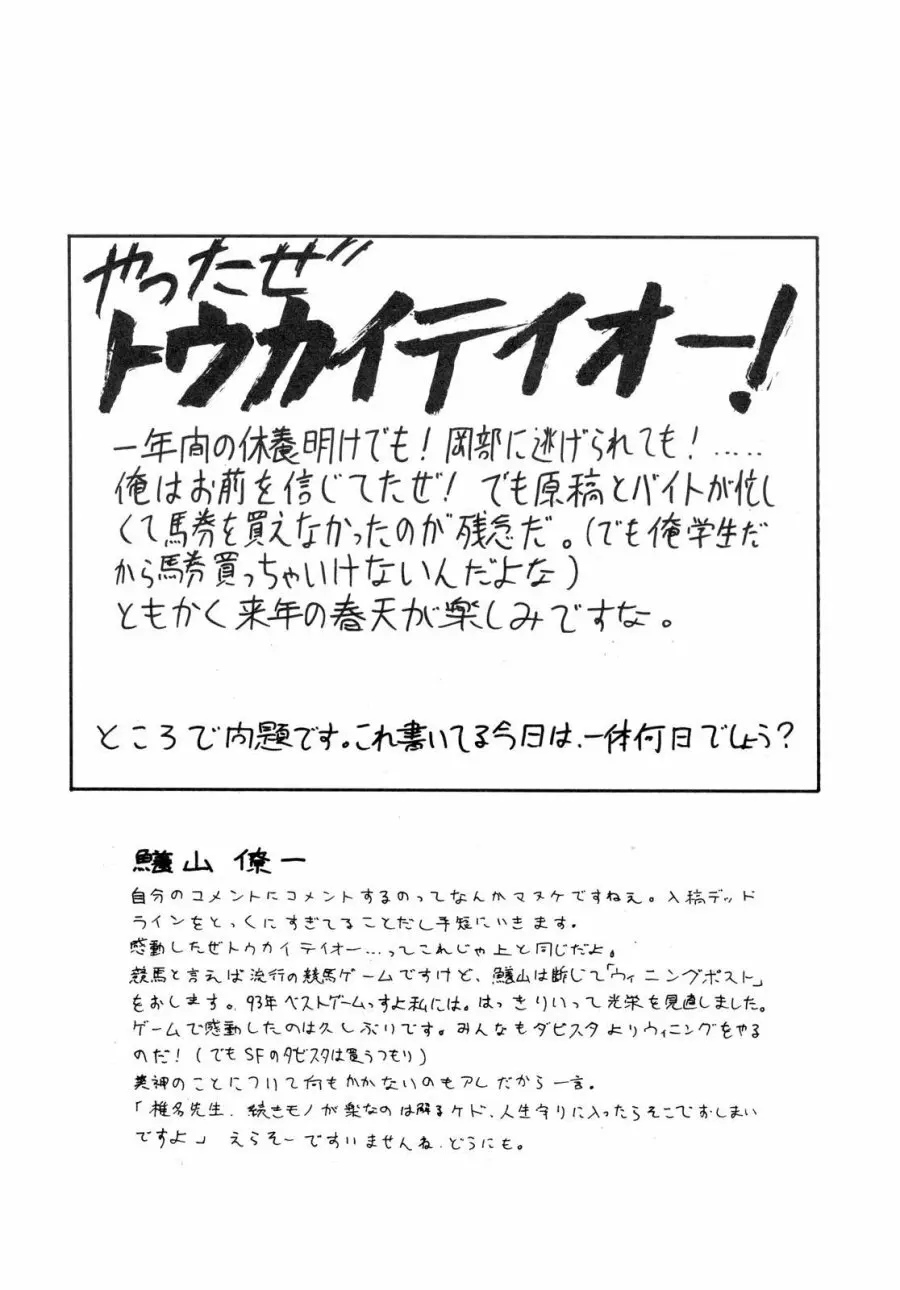 やったぜ
トウカイテイオー!
一年間の休養明けでも!岡部に逃げられても!.....
俺はお前を信じてたぜ! でも原稿とバイトが忙し
くて馬券を買えなかったのが残念だ。(でも俺学生だ
から馬券買っちゃいけないんだよな)
ともかく来年の春天が楽しみですな。
ところで問題です。これ書いてる今日は、一体何日でしょう?
鱶山 僚一
自分のコメントにコメントするのってなんかマヌケですねえ。入稿デッド
ラインをとっくにすぎてることだし手短にいきます。
感動したぜトウカイテイオー...ってこれじゃ上と同じだよ。
競馬と言えば流行の競馬ゲームですけど、鱶山は断じて「ウィニングポスト」
をおします。93年ベストゲームっすよ私には。はっきりいって光栄を見直しました。
ゲームで感動したのは久しぶりです。みんなもダビスタよりウィニングをやる
のだ!(でもSFのダビスタは買うつもり)
美神のことについて何もかかないのもアレだから一言。
「椎名先生、続きモノが楽なのは解るケド、人生守りに入ったらそこでおしまい
ですよ」 えらそーですいませんね、どうにも。